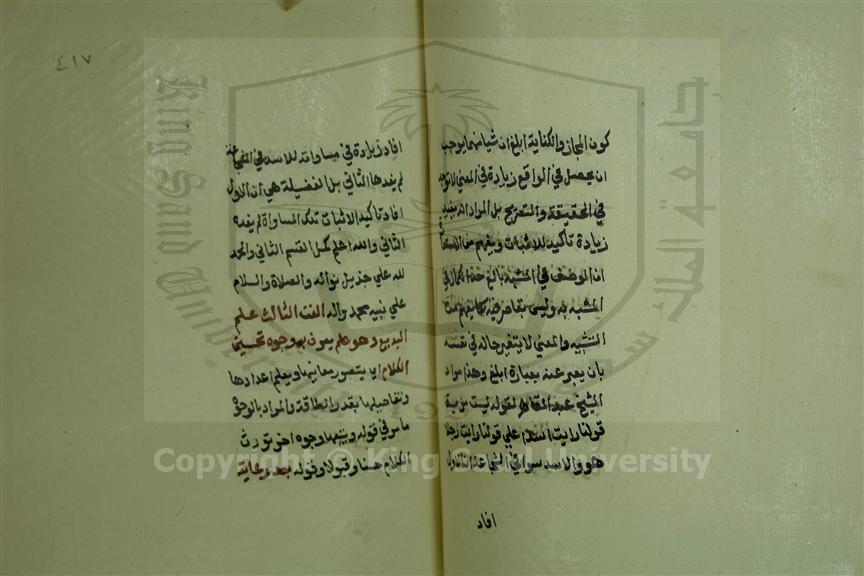 كون المجاز والكناية ابلغ ان شيا منهما يوجب
ان يحصل في الواقع زيادة في المعني لا توجد
في الحقيقة والتصريح بل المراد انه يفيد
زيادة تاكيد للاثبات ويفهم من الاستعارة
ان الوصف في المشبه بالغ حد الكمال في
المشبه به وليس بقاصر فيه كما يفهم من
التشبيه والمعني لا يتغير حاله في نفسه
بان يعبر عنه بعبارة ابلغ وهذا مراد
الشيخ عبد القاهر بقوله ليست مزية
قولنا رايت اسدا علي قولنا رايت رجلا
هو والاسد سوا في الشجاعة ان الاول
افاد
٤١٧
افاد زيادة في مساواته للاسد في الشجاعة
لم يفدها الثاني بل الفضيلة هي ان الاول
افاد تاكيد الاثبات تلك المساواة لم يفده
الثاني والله اعلم كمل القسم الثاني والحمد
لله علي جزيل نواله والصلاة والسلام
علي نبيه محمد واله الفن الثالث علم
البديع وهو علم يعرف به وجوه تحسين
الكلام اي يتصور معانيها ويعلم اعدادها
وتفاصيلها بقدر الطاقة والمراد بالوجوه
ما مر في قوله ويتبعها وجوه اخر تورث
الكلام حسنا وقبولا وقوله بعد رعاية
جامعة الملك سعود
King Saud University
1957
Copyright © King Saud University